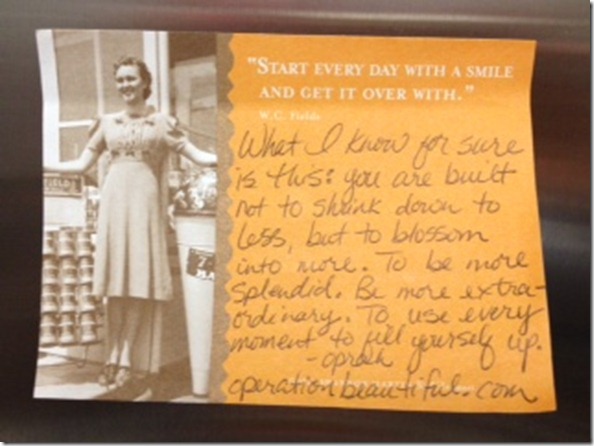 "START EVERY DAY WITH A SMILE
AND GET IT OVER WITH."
W.C. Fields
What I know for sure
is this: you are built
not to shrink down to
less, but to blossom
into more. To be more
splendid. Be more extra-
ordinary. To use every
moment to fill yourself up.
-oprah
operationbeautiful.com